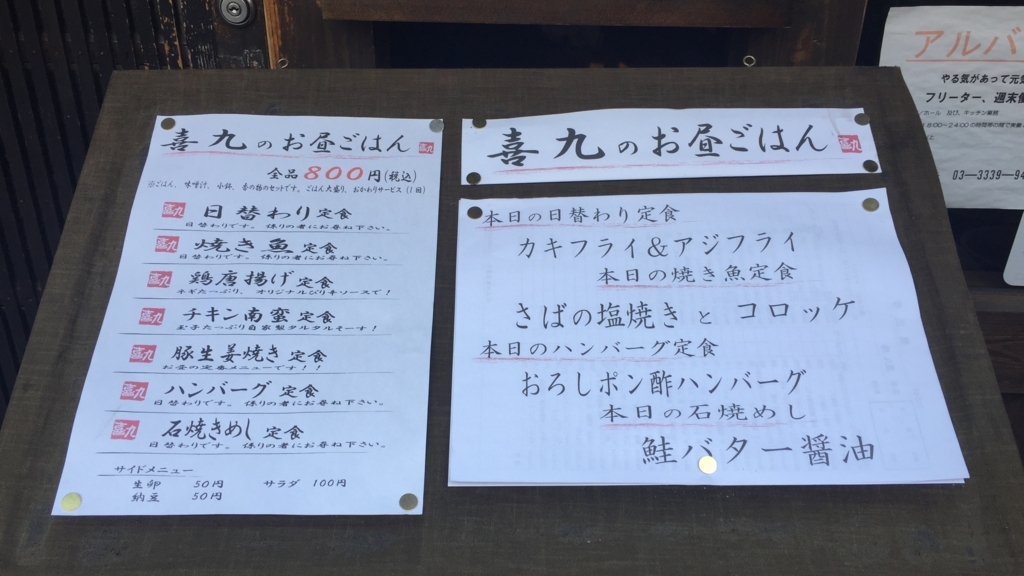 喜九のお昼ごはん
全品800円(税込)
※ごはん、味噌汁、小鉢、香の物のセットです。ごはん大盛り、おかわりサービス(1回)
喜九 日替わり定食
日替わりです。係りの者にお尋ね下さい。
喜九 焼き魚 定食
日替わりです。係りの者にお尋ね下さい。
喜九 鶏唐揚げ 定食
ネギたっぷり、オリジナルぴり辛ソースで!
喜九 チキン南蛮 定食
玉子たっぷり自家製タルタルそーす!
喜九 豚生姜焼き 定食
お昼の定番メニューです!!
喜九 ハンバーグ 定食
日替わりです。係りの者にお尋ね下さい。
喜九 石焼きめし 定食
日替わりです。係りの者にお尋ね下さい。
サイドメニュー
生卵 50円 サラダ 100円
納豆 50円
喜九のお昼ごはん 喜九
本日の日替わり定食
カキフライ&アジフライ
本日の焼き魚定食
さばの塩焼きと コロッケ
本日のハンバーグ定食
おろしポン酢ハンバーグ
本日の石焼めし
鮭バター醤油
アルバ
やる気があって元気
フリーター、週末
ホール 及び、キッチン業務
03—3339—94